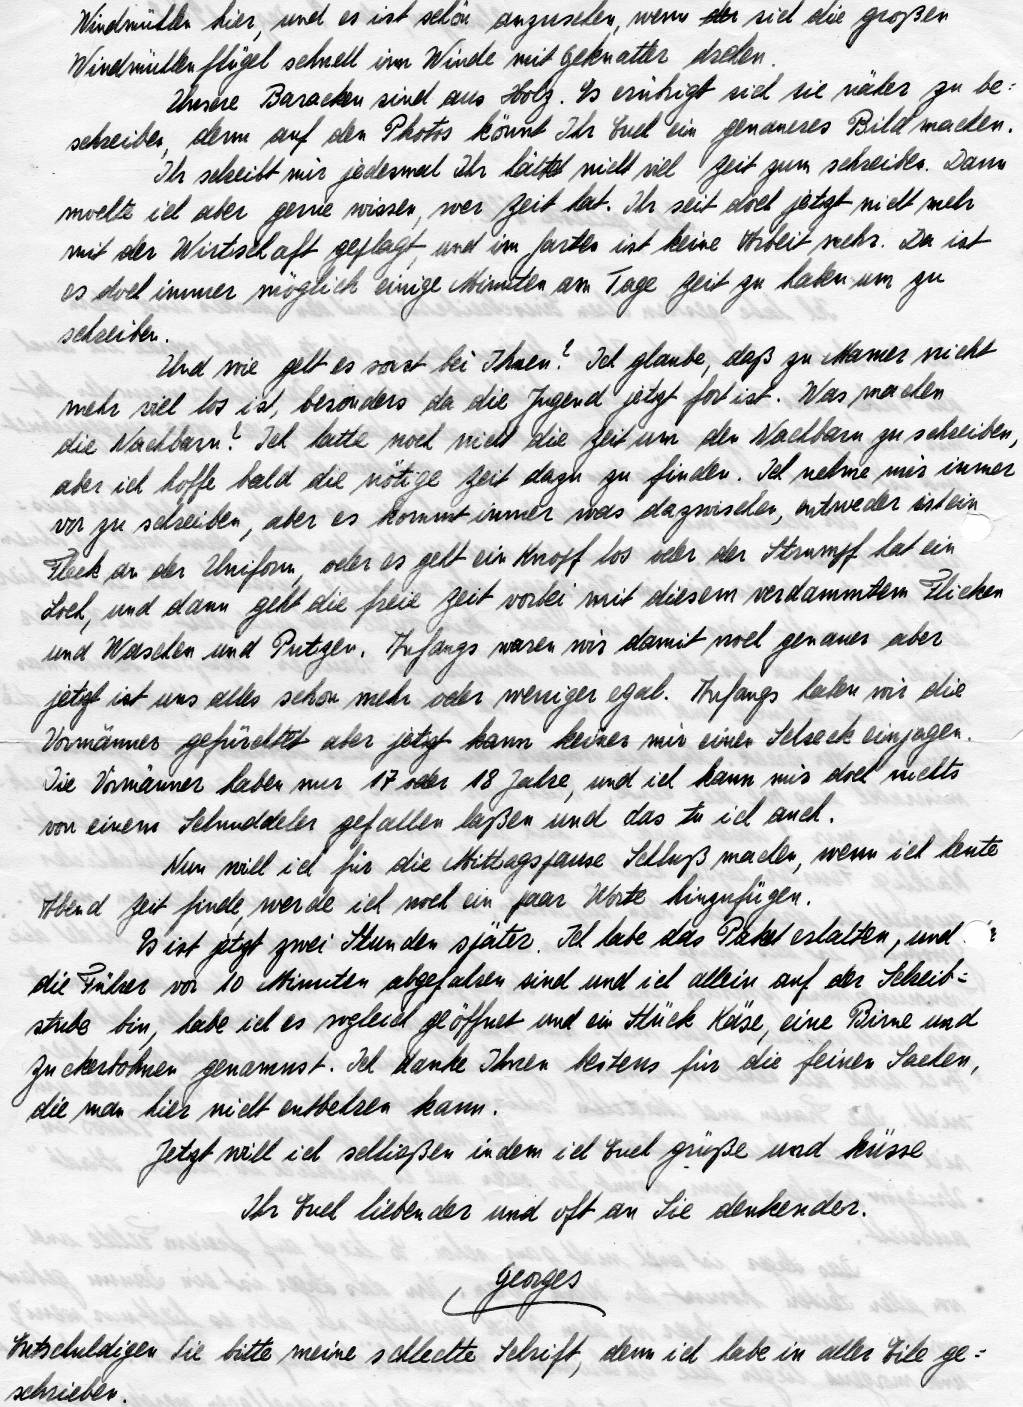 Windmühlen hier, und es ist schön anzusehen, wenn der sich die großen
Windmühlenflügel schnell im Winde mit Geknatter drehen.
Unsere Baracken sind aus Holz. Es erübrigt sich sie näher zu be=
schreiben, denn auf den Photos könnt Ihr Euch ein genaueres Bild machen.
Ihr schreibt mir jedesmal Ihr hättet nicht viel Zeit zum schreiben. Dann
moechte ich aber gerne wissen, wer Zeit hat. Ihr seit doch jetzt nicht mehr
mit der Wirtschaft geplagt, und im Garten ist keine Arbeit mehr. Da ist
es doch immer möglich einige Minuten am Tage Zeit zu haben um zu
schreiben.
Und wie geht es sonst bei Ihnen? Ich glaube, daß zu Mamer nicht
mehr viel los ist, besonders da die Jugend jetzt fort ist. Was machen
die Nachbarn? Ich hatte noch nicht die Zeit um den Nachbarn zu schreiben,
aber ich hoffe bald die nötige Zeit dazu zu finden. Ich nehme mir immer
vor zu schreiben, aber es kommt immer was dazwischen, entweder ist ein
Fleck an der Uniform, oder es geht ein Knopf los oder der Strumpf hat ein
Loch, und dann geht die freie Zeit vorbei mit diesem verdammten Flicken
und Waschen und Putzen. Anfangs waren wir damit noch genauer aber
jetzt ist uns alles schon mehr oder weniger egal. Anfangs haben wir die
Vormänner gefürchtet aber jetzt kann keiner mir einen Schreck einjagen.
Die Vormänner haben nur 17 oder 18 Jahre, und ich kann mir doch nichts
von einem Schnuddeler gefallen laßen und das tu ich auch.
Nun will ich für die Mittagspause Schluß machen, wenn ich heute
Abend Zeit finde, werde ich noch ein paar Worte hinzufügen.
Es ist jetzt zwei Stunden später. Ich habe das Paket erhalten, und
die Führer vor 10 Minuten abgefahren sind und ich allein auf der Schreib=
stube bin, habe ich es sogleich geöffnet und ein Stück Käse, eine Birne und
Zuckerbohnen genommst. Ich danke Ihnen bestens für die feinen Sachen,
die man hier nicht entbehren kann.
Jetzt will ich schließen indem ich Euch grüße und küsse
Ihr Euch liebender und oft an Sie denkender.
Georges
Entschuldigen Sie bitte meine schlechte Schrift, denn ich habe in aller Eile ge=
schrieben.